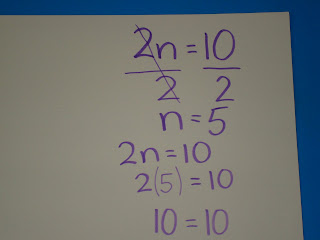 2n = 10
2 2
n = 5
2n = 10
2(5) = 10
10 = 10